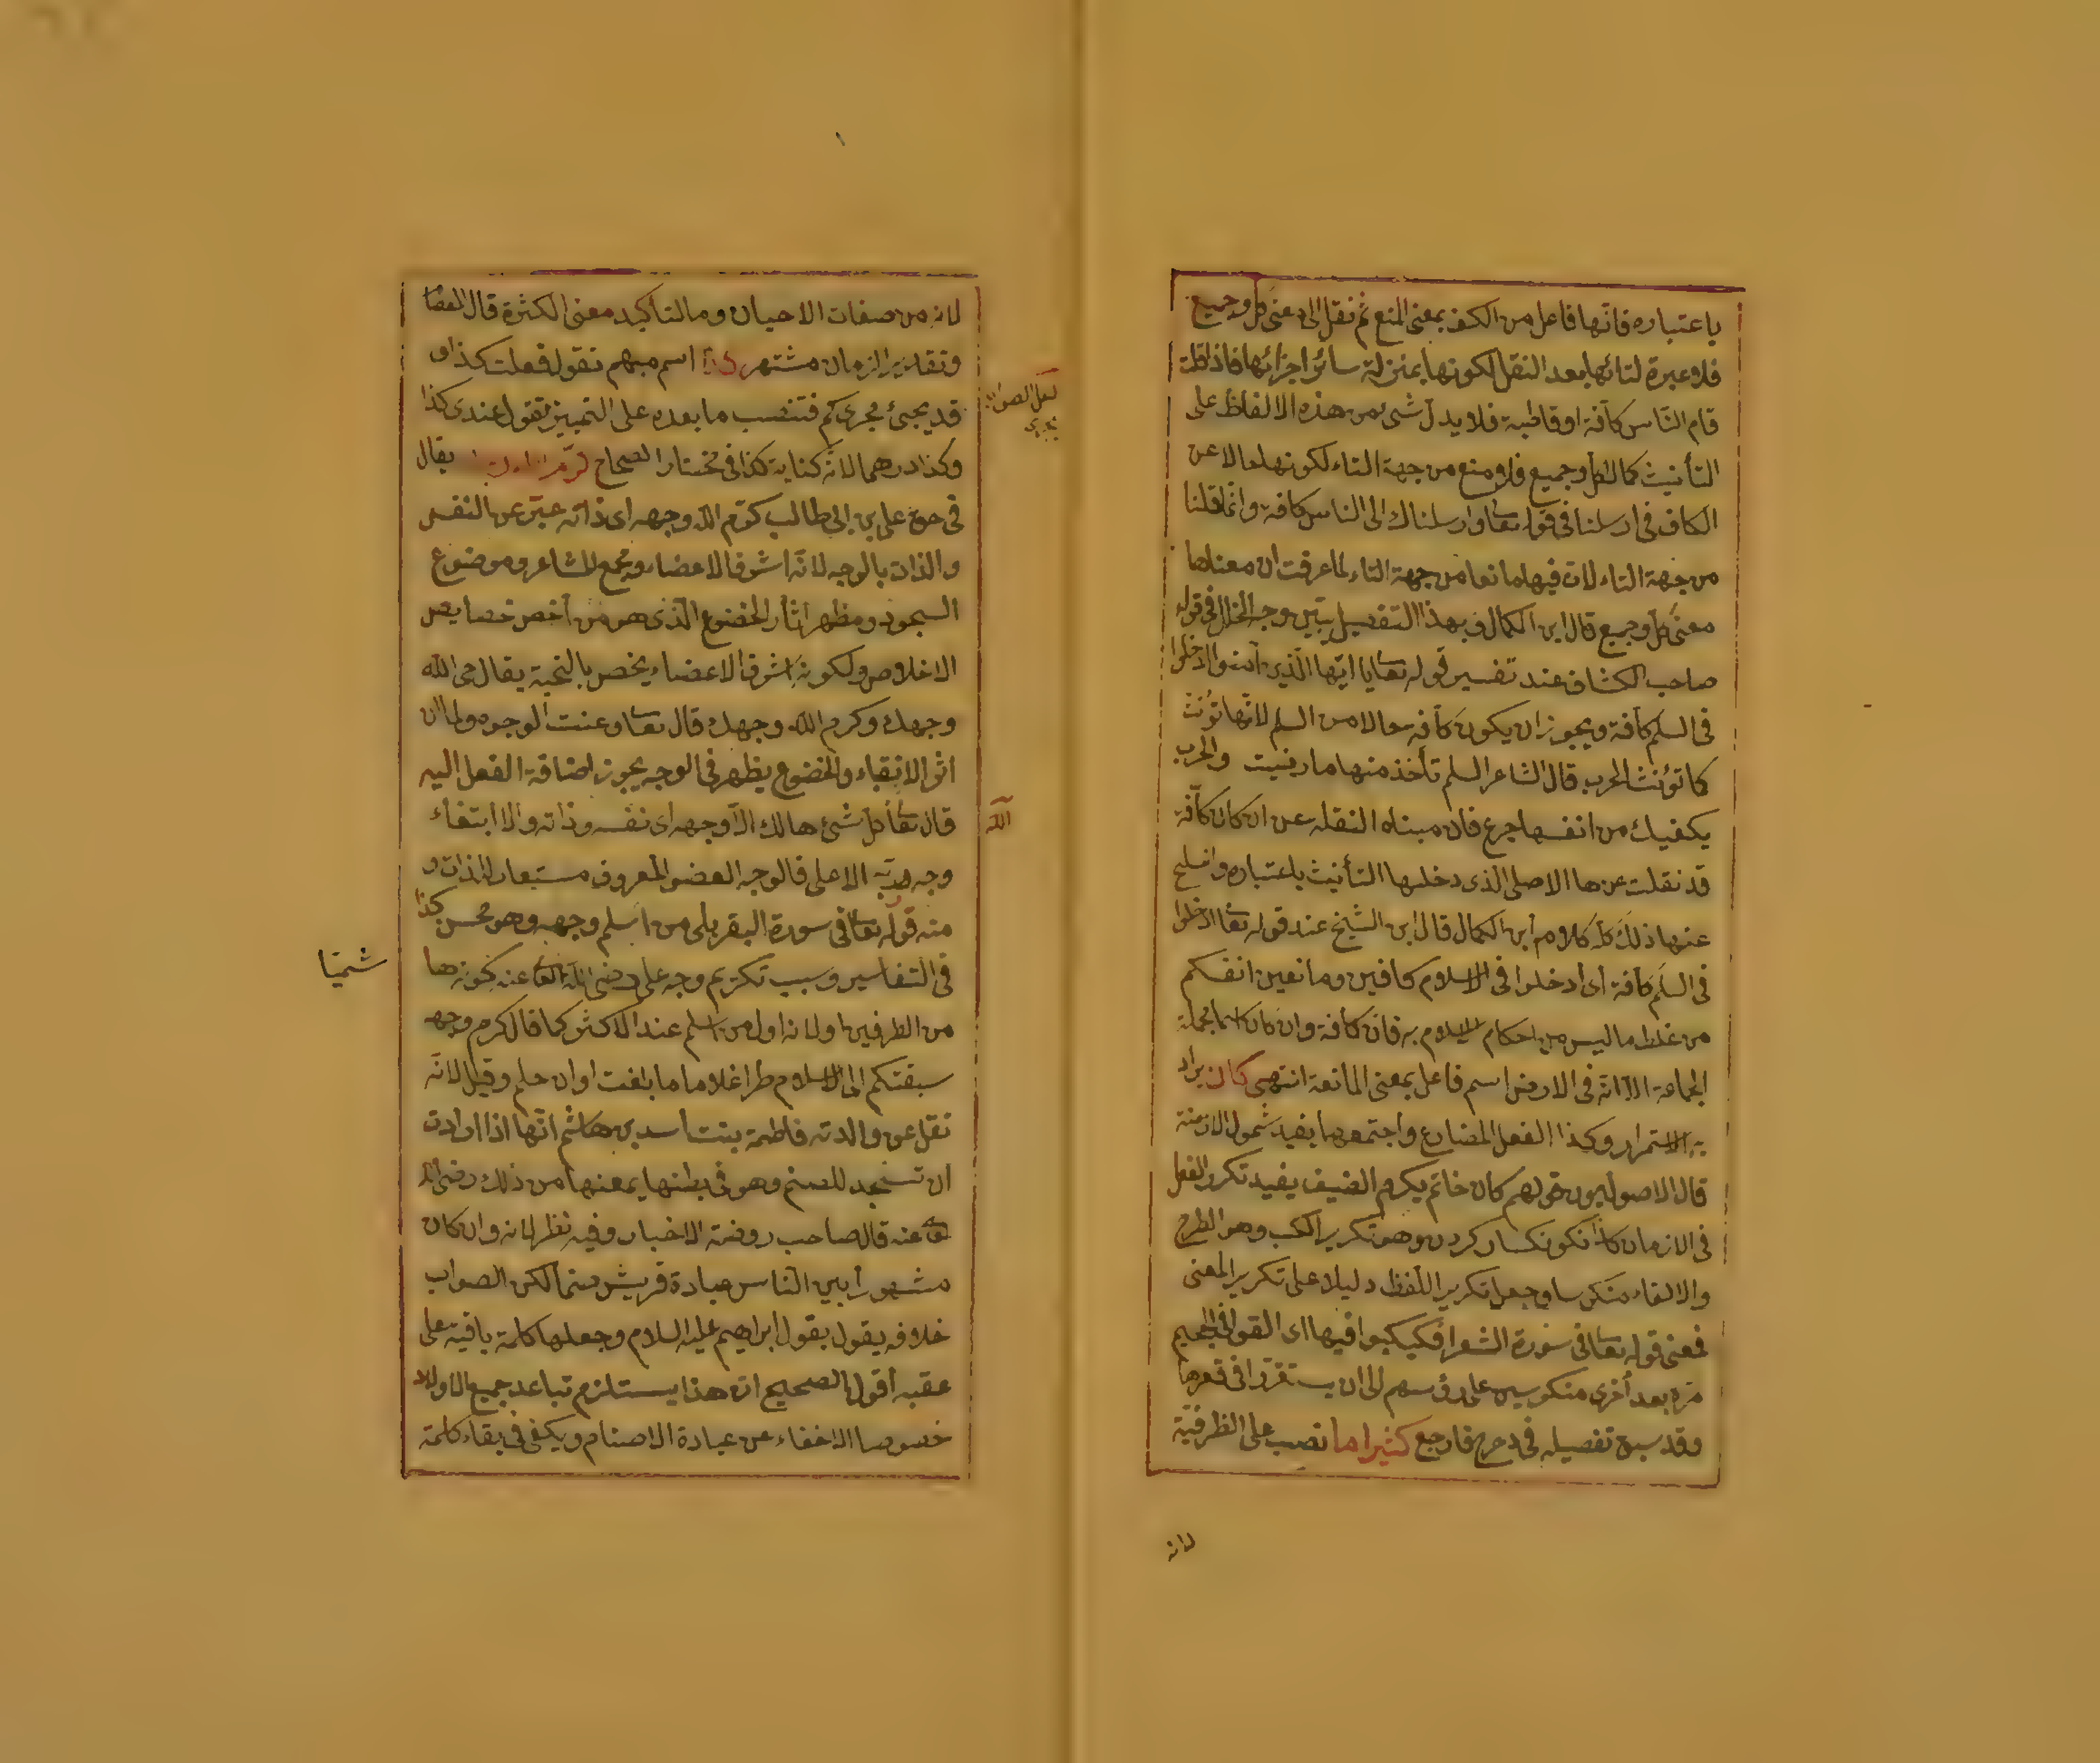 باعتباره فانها فاعل من الكف بمعنى المنع ثم نقل الى معنى كل وجميع
فلا عبرة لتائها بعد النقل لكونها بمنزلة سائر اجزائها فاذا قلت
قام الناس كافة او قاطبة فلا يدل شئ من هذه الالفاظ على
التأنيث كما لا كل وجميع فلا منع من جهة التاء لكونها حالا عن
الكاف فى ارسلنا فى قوله تعا وارسلناك الى الناس كافة وانما قلنا
من جهة التاء لان فيها مانعا من جهة التاء لما عرفت ان معناها
معنى كل وجميع قال ابن الكمال وبهذا التفصيل تبين وجه الخلل فى قول
صاحب الكشاف عند تفسير قوله تعا يا ايها الذين آمنوا ادخلوا
فى السلم كافة ويجوز ان يكون كافة حالا من السلم لانها تؤنث
كما تؤنث الحرب قال الشاعر السلم تأخذ منها ما رضيت والحرب
يكفيك من انفسها جرع فان مبناه النقله عن ان كان كافة
قد نقلت عن ها الاصلى الذى دخلها التأنيث باعتباره وانسلخ
عنها ذلك كله كلام ابن الكمال قال ابن الشيخ عند قوله تعا ادخلوا
فى السلم كافة اى ادخلوا فى الاسلام كافين ومانعين انفسكم
من غلط ما ليس من احكام الاسلام به فان كافة وان كان اسما لجملة
الجماعة الا انه فى الارض اسم فاعل بمعنى المانعة انتهى كان يراد
به الاستمرار وكذا الفعل المضارع واجتمعهما يفيد شمول الازمنة
قال الاصوليون قولهم كان حاتم يكرم الضيف يفيد تكرر الفعل
فى الازمان كذا نكونكسار كردن وهو تكرير الكب وهو الطرح
والالقاء منكوسا وجعل تكرير اللفظ دليلا على تكرير المعنى
فمعنى قوله تعا فى سورة الشعراء فكبكبوا فيها اى القوا فى الجحيم
مرة بعد أخرى منكوسين على رؤسهم الى ان يستقروا فى قعرها
وقد سبق تفصيله فى دحرج فارجع كثيرا ما نصب على الظرفية
لانه
لانه من صفات الاحيان وما لتأكيد معنى الكثرة قال العصا
وتقدير الزمان مشتهر كذا اسم مبهم تقول فعلت كذا و
قد يجئ مجرى كم فتنصب ما بعده على التمييز تقول عندى كذا
وكذا درهما لانه كناية كذا فى مختار الصحاح يقال
فى حق على بن ابى طالب كرم الله وجهه اى ذاته عبر عن النفس
والذات بالوجه لانه اشرف الاعضاء ومجمع المشاعر وموضوع
السجود ومظهر اثار الخضوع الذى هو من أخص خصايص
الاخلاص ولكونه اشرف الاعضاء يخص بالتحية يقال حى الله
وجهك وكرم الله وجهك قال تعا وعنت الوجوه ولما ان
اثر الانقياء والخضوع يظهر فى الوجه يجوز اضافة الفعل اليه
قال تعا كل شئ هالك الا وجهه اى نفسه وذاته والا ابتغاء
وجه ربه الاعلى فالوجه العضو المعروف مستعار للذات و
منه قوله تعا فى سورة البقر بلى من اسلم وجهه وهو محسن كذا
فى التفاسير وسبب تكريم وجه على رضى الله تعا عنه كونه ها
من الطرفين اولانه اول من اسلم عند الاكثر كما قال كرم وجه
سبقتكم الى الاسلام طرا غلاما ما بلغت اوان حلم وقيل لانه
نقل عن والدته فاطمة بنت أسد بن هاشم انها اذا ارادت
ان تسجد للصنم وهو فى بطنها يمنعها من ذلك رضى الله
تعا عنه قال صاحب روضة الاخبار وفيه نظر لانه وان كان
مشهورا بين الناس عبادة قريش صنما لكن الصواب
خلافه يقول بقول ابراهيم عليه السلام وجعلها كلمة باقية على
عقبه أقول الصحيح ان هذا يستلزم تباعد جميع الاولاد
خصوصا الاخفاء عن عبادة الاصنام ويكفى فى بقاء كلمة
لعل الصواب
يجرى
الله
شميا